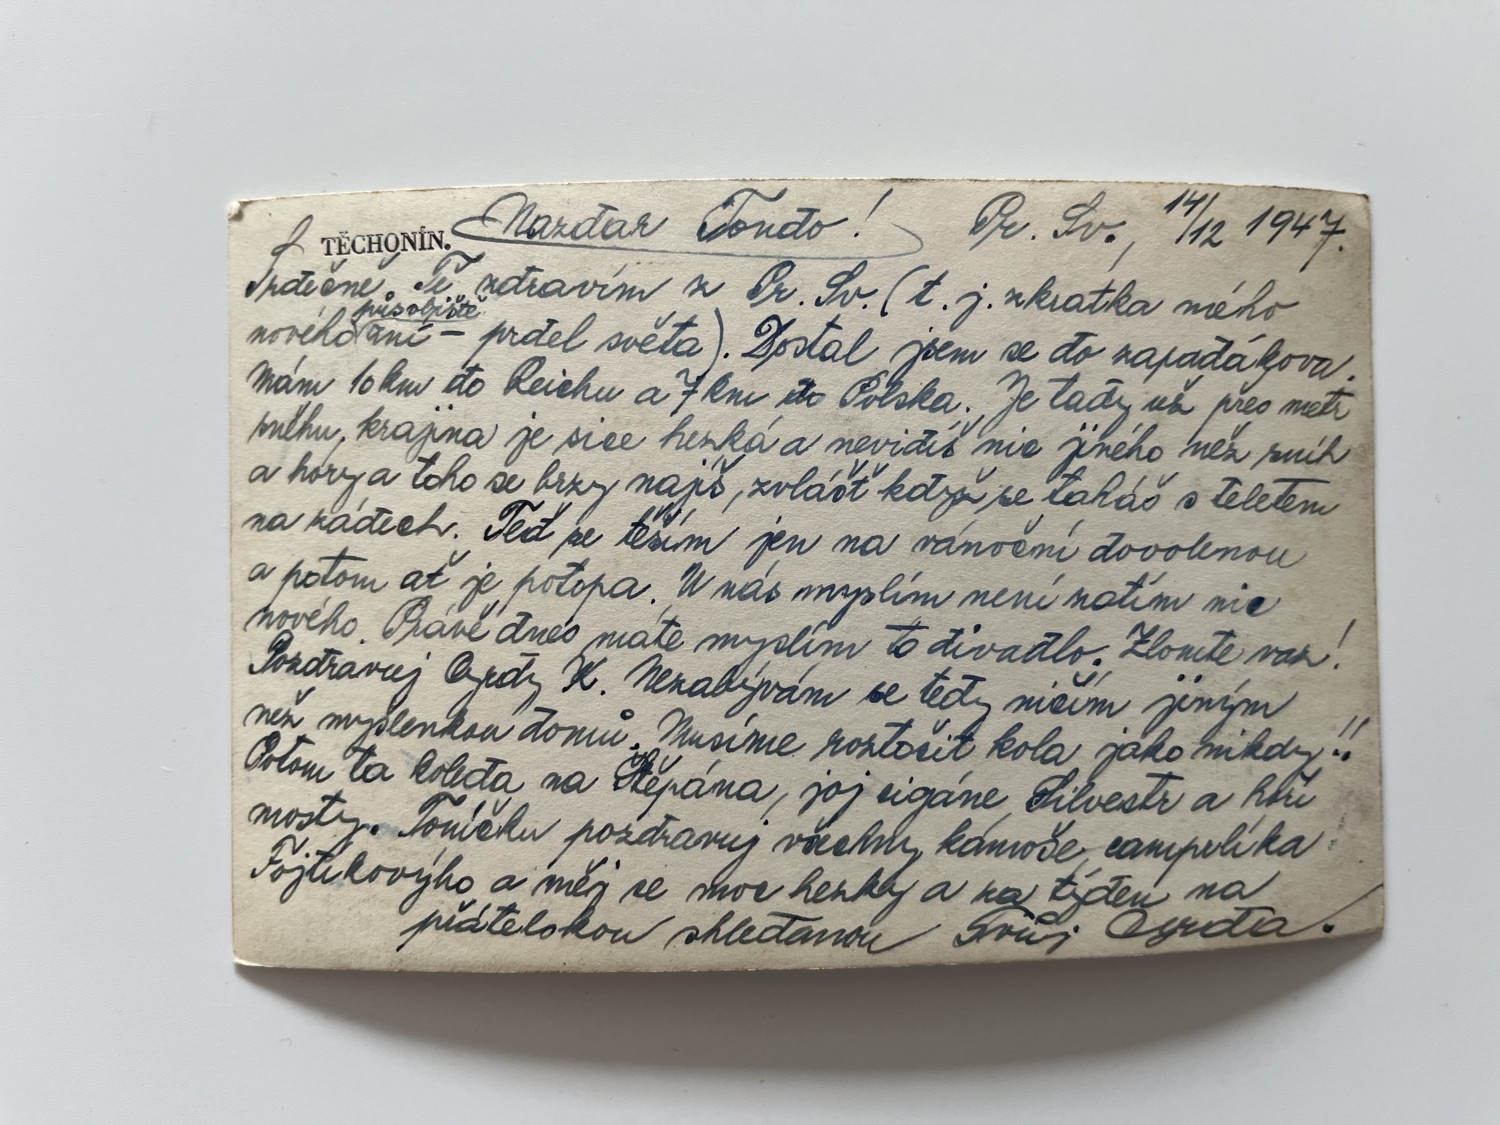 TĚCHONÍN. Nazdar Tondo! Pr. Sv., 14/12 1947.
Srdečně Tě zdravím z Pr. Sv. (t. j. zkratka mého
působiště
nového zní – prdel světa). Dostal jsem se do zapadákova.
Mám 10 km do Reichu a 7 km do Polska. Je tady už přes metr
sněhu, krajina je sice hezká a nevidíš nic jiného než sníh
a hory a toho se brzy najíš, zvlášť když se taháš s teletem
na zádech. Teď se těším jen na vánoční dovolenou
a potom ať je potopa. U nás myslím není zatím nic
nového. Právě dnes máte myslím to divadlo. Zlomte vaz!
Pozdravuj K. Nezabývám se tedy ničím jiným
než myslenkou domů. Musíme roztočit kola jako nikdy!!
Potom ta koleda na Štěpána, joj cigáne Silvestr a hoří
mosty. Toníčku pozdravuj všechny kámoše, campulíka
Fojtíkovýho a měj se moc hezky a za týden na
přátelskou shledanou Tvůj